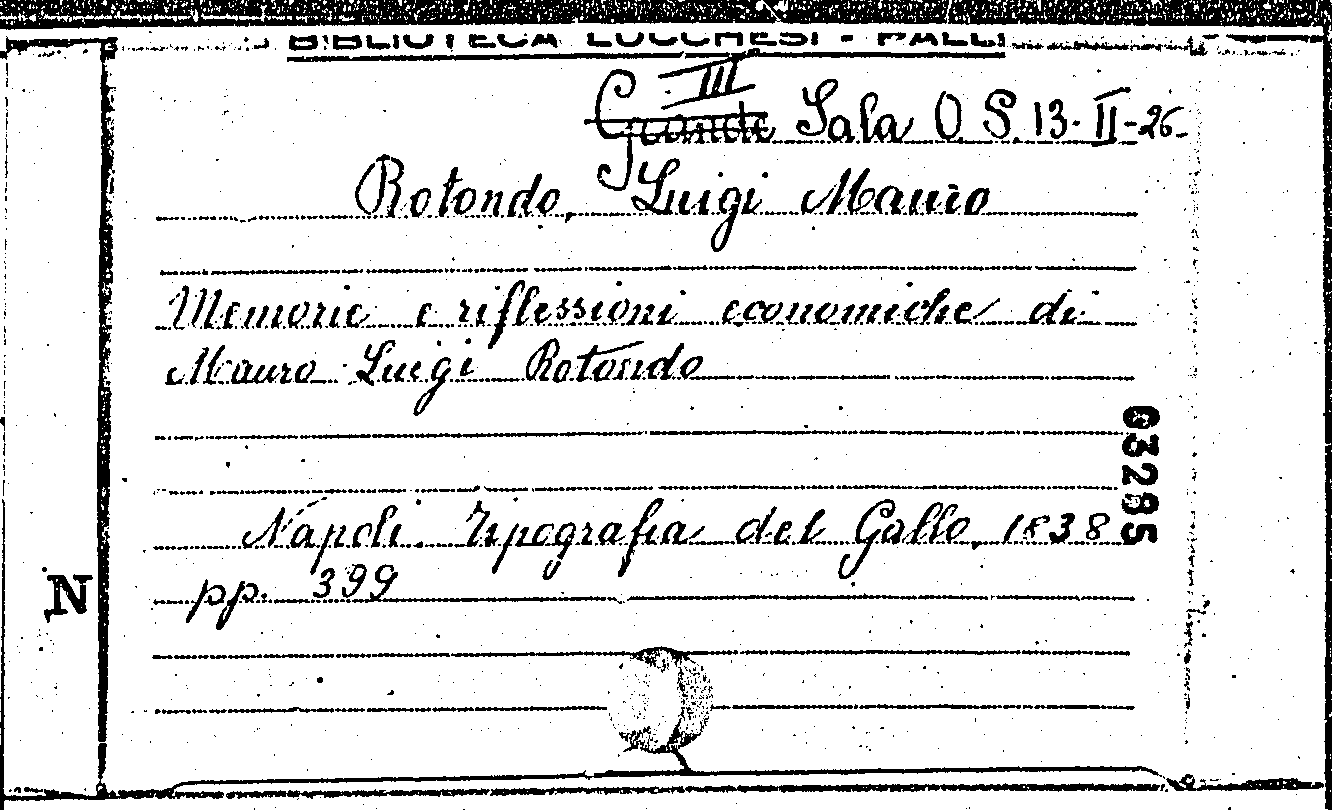 BIBLIOTECA LUCCHESI - PALLI
III
Grande Sala O. S. 13-II-26-
Rotondo, Luigi Mauro
Memorie e riflessioni economiche di
Mauro Luigi Rotondo
Napoli. Tipografia del Gallo, 1838
pp. 399
63285
N